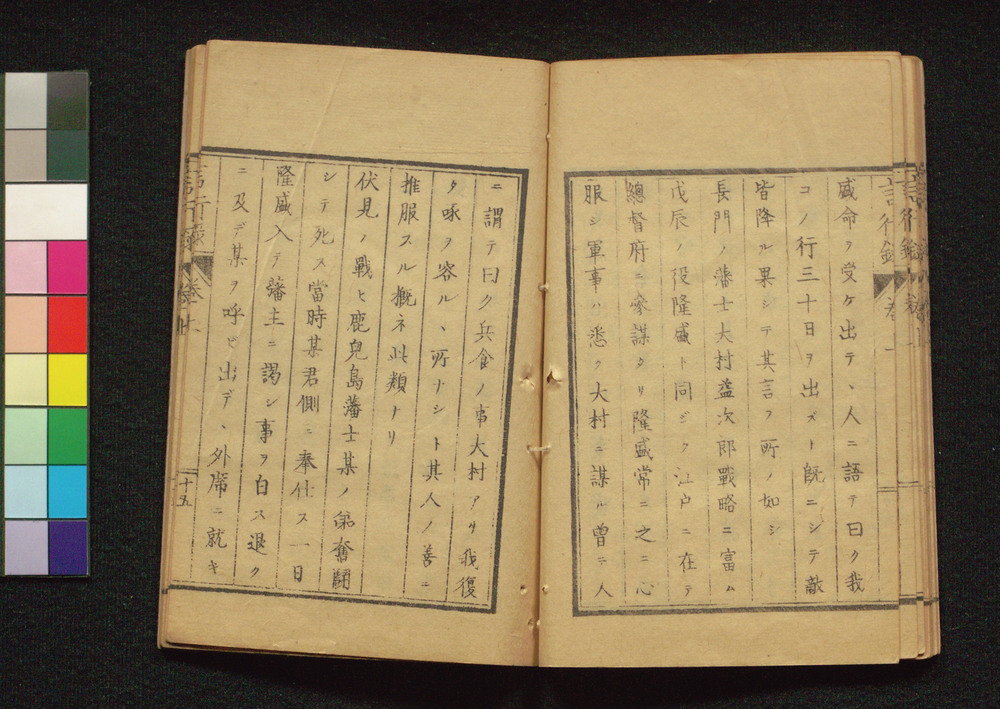 盛命ヲ受ケ出テ、人ニ語テ曰ク我
コノ行三十日ヲ出ズト既ニシテ敵
皆降ル果シテ其言フ所ノ如シ
長門ノ藩士大村益次郎戰略ニ富ム
戊辰ノ役隆盛ト同ジク江戸ニ在テ
總督府ニ參謀タリ隆盛常ニ之ニ心
服シ軍事ハ悉ク大村ニ謀ル曽テ人
ニ謂テ曰ク兵食ノ事大村アリ我復
タ啄ヲ容ルヽ所ナシト其人ノ善ニ
推服スル概ネ此類ナリ
伏見ノ戰ヒ鹿兒島藩士某ノ弟奮鬪
シテ死ス當時某君側ニ奉仕ス一日
隆盛入テ藩主ニ謁シ事ヲ白ス退ク
ニ及デ某ヲ呼ビ出デ、外席ニ就キ
言行錄
十五